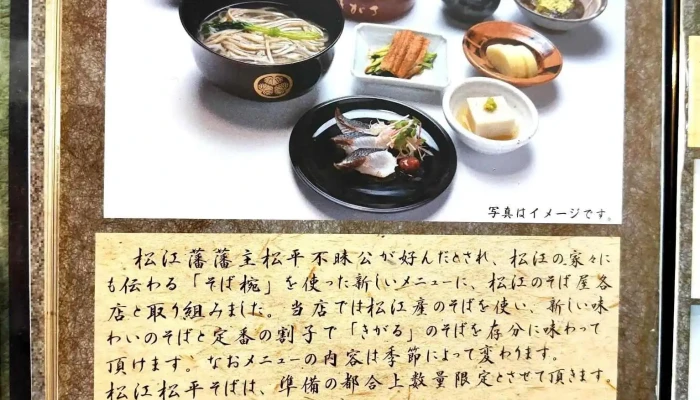 きがる
写真はイメージです。
松江藩藩主松平不昧公が好んだとされ、松江の家々に
も伝わる「そば椀」を使った新しいメニューに、松江のそば屋各
店と取り組みました。当店では松江産のそばを使い、新しい味
わいのそばと定番の割子で「きがる」のそばを存分に味わって
頂けます。なおメニューの内容は季節によって変わります。
松江松平そばは、準備の都合上数量限定とさせて頂きます